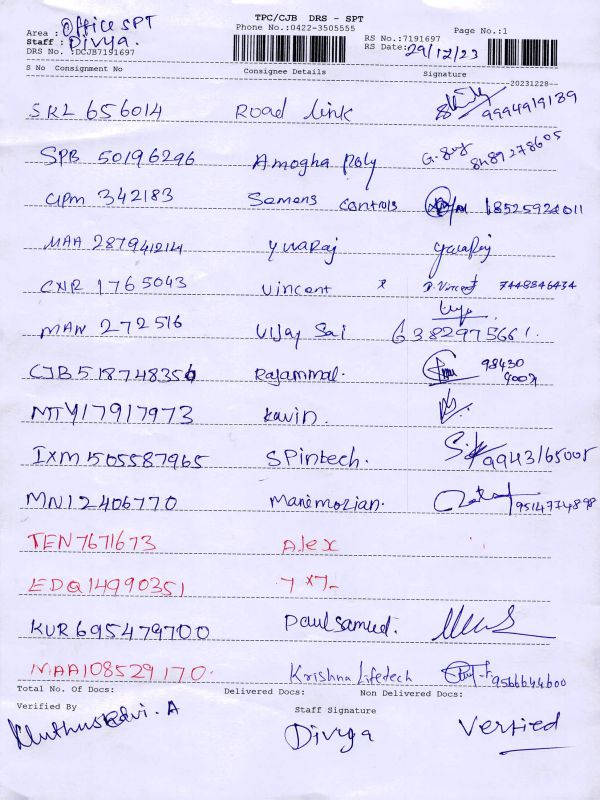 TPC/CJB DRS - SPT
Area : Office SPT Phone No.:0422-3505555 Page No.:1
Staff : Divya. RS No.:7191697
DRS No. :DCJB7191697 RS Date: 29/12/23
S No Consignment No Consignee Details Signature
20231228
SRL 656014 Road link 9994919189
SPB 50196296 Amogha Poly 8489278605
CIPM 342183 Semens controls 18525924011
MAA 2879412124 Yuvaraj Yuvaraj
CNR 1765043 Vincent x P. Vincent 7448846434
MAN 272516 Vijay Sai 6382975661.
CJB518748356 Rajammal. 98430
MTY17917973 Kavin.
IXM1505587965 SPintech. 9943165005
MN12406770 Manimozian. 9514774898
TEN7671673 Alex
EDQ14990351 7 x 7
KUR695479700 Paulsamuel.
MAA108529170. Krishna Lifetech 9566644600
Total No. Of Docs: Delivered Docs: Non Delivered Docs:
Verified By Staff Signature
Divya Verfied